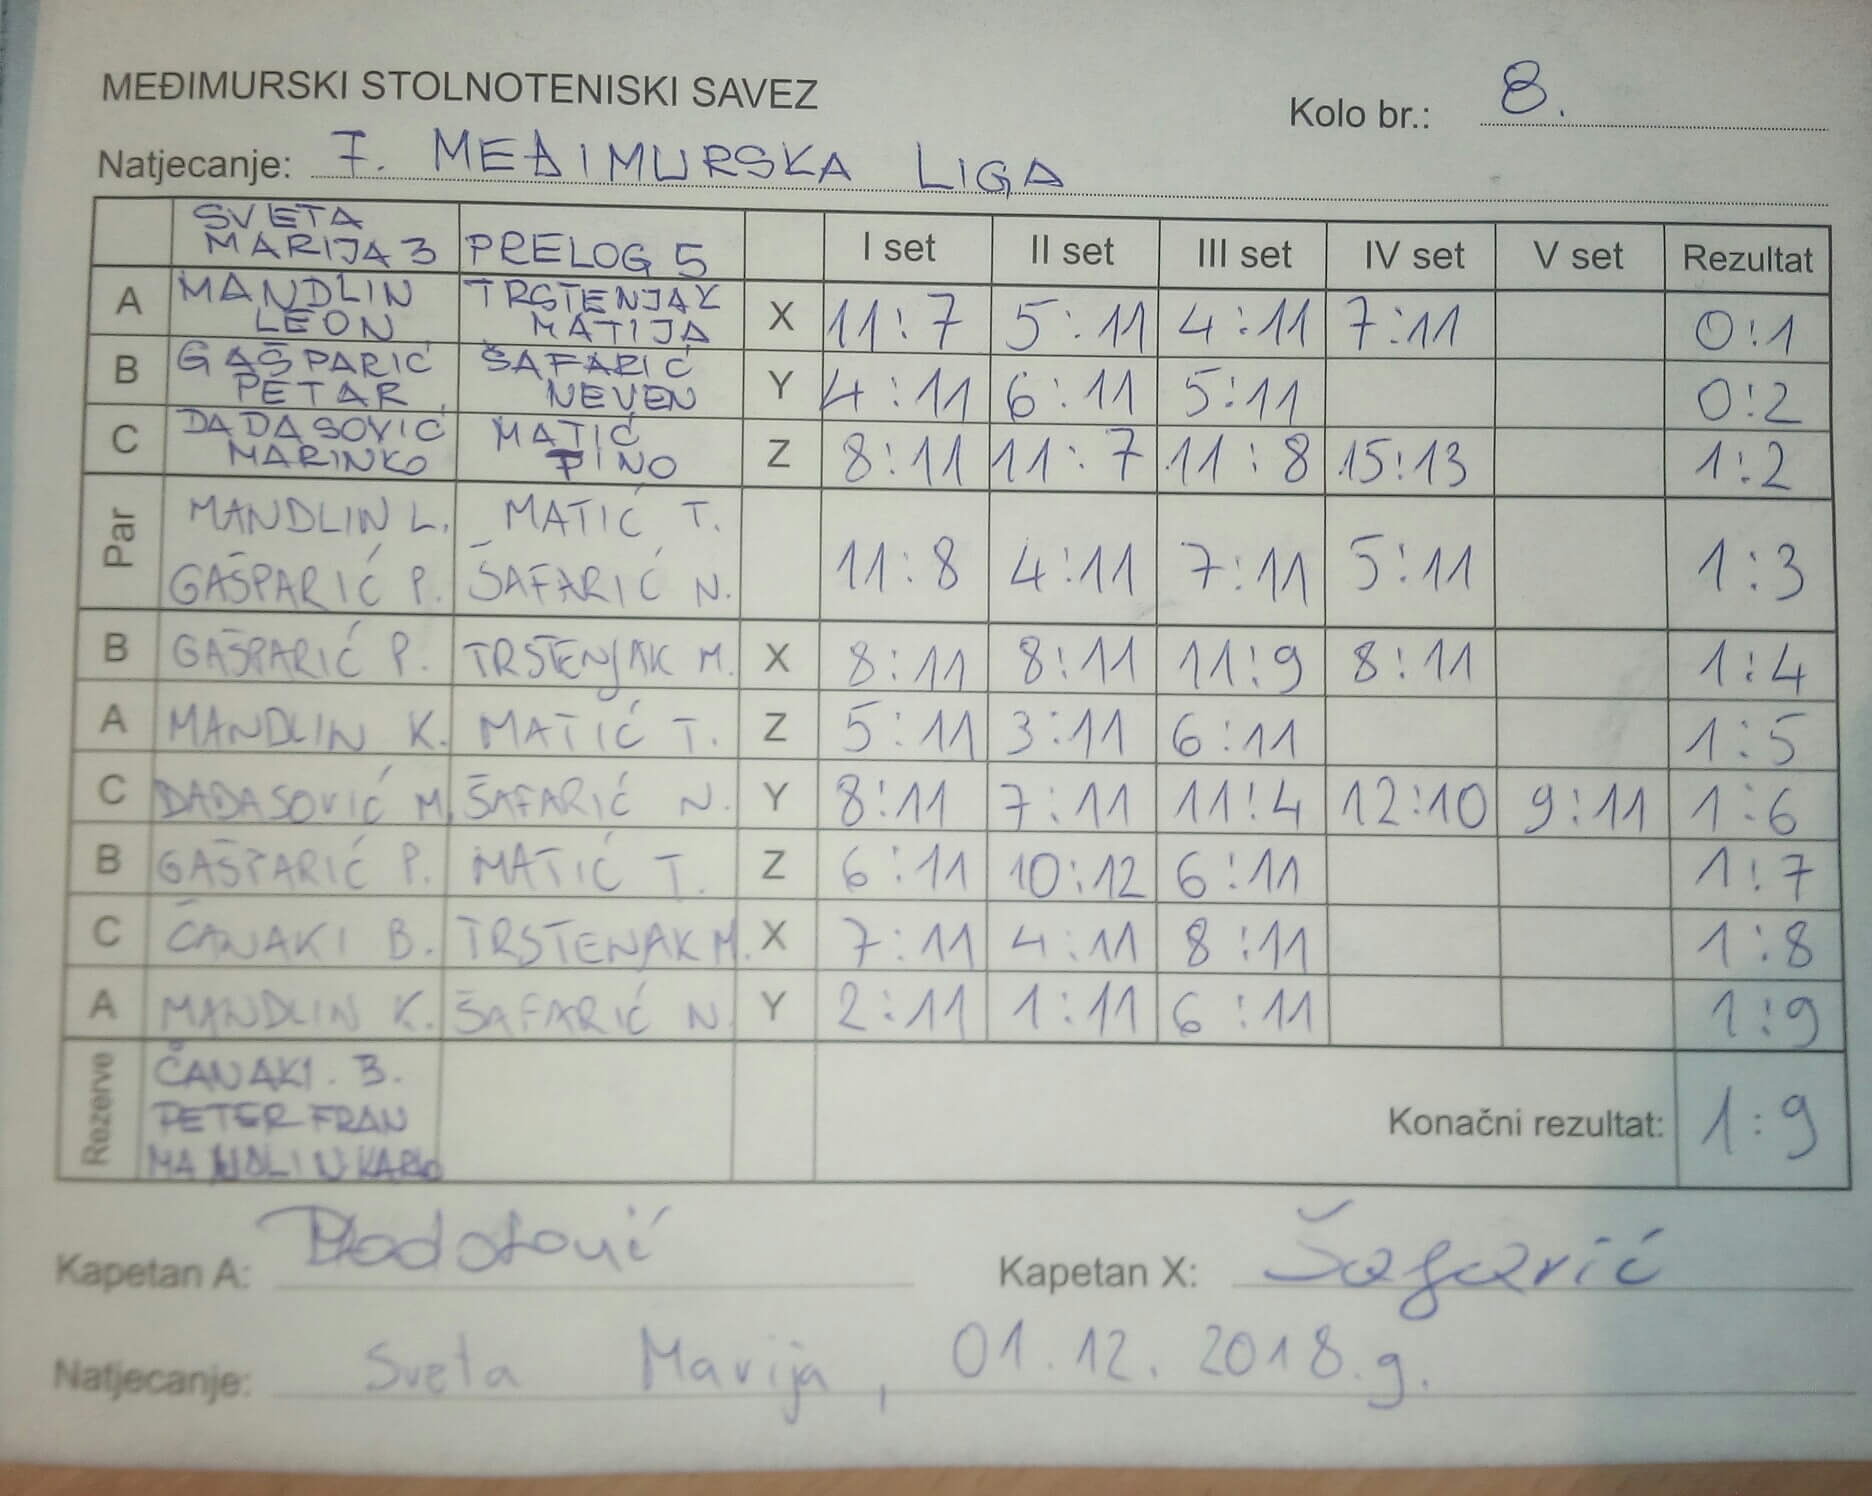 MEĐIMURSKI STOLNOTENISKI SAVEZ
Kolo br.: 8.
Natjecanje: 7. MEĐIMURSKA LIGA
SVETA MARIJA 3 PRELOG 5 I set II set III set IV set V set Rezultat
A MANDLIN LEON TRSTENJAK MATIJA X 11:7 5:11 4:11 7:11 0:1
B GAŠPARIĆ PETAR ŠAFARIĆ NEVEN Y 4:11 6:11 5:11 0:2
C DADASOVIĆ MARINKO MATIĆ TINO Z 8:11 11:7 11:8 15:13 1:2
Par MANDLIN L. MATIĆ T.
GAŠPARIĆ P. ŠAFARIĆ N. 11:8 4:11 7:11 5:11 1:3
B GAŠPARIĆ P. TRSTENJAK M. X 8:11 8:11 11:9 8:11 1:4
A MANDLIN K. MATIĆ T. Z 5:11 3:11 6:11 1:5
C DADASOVIĆ M. ŠAFARIĆ N. Y 8:11 7:11 11:4 12:10 9:11 1:6
B GAŠPARIĆ P. MATIĆ T. Z 6:11 10:12 6:11 1:7
C ČANAKI B. TRSTENAK M. X 7:11 4:11 8:11 1:8
A MANDLIN K. ŠAFARIĆ N. Y 2:11 1:11 6:11 1:9
Rezerve ČANAKI. B.
PETER FRAN
MANDLIN KARLO
Konačni rezultat: 1:9
Kapetan A: Dadasović Kapetan X: Šafarić
Natjecanje: Sveta Marija, 01.12.2018.g.